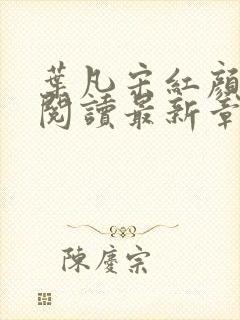 葉凡宋紅顏
閱讀最新章
陳慶宗